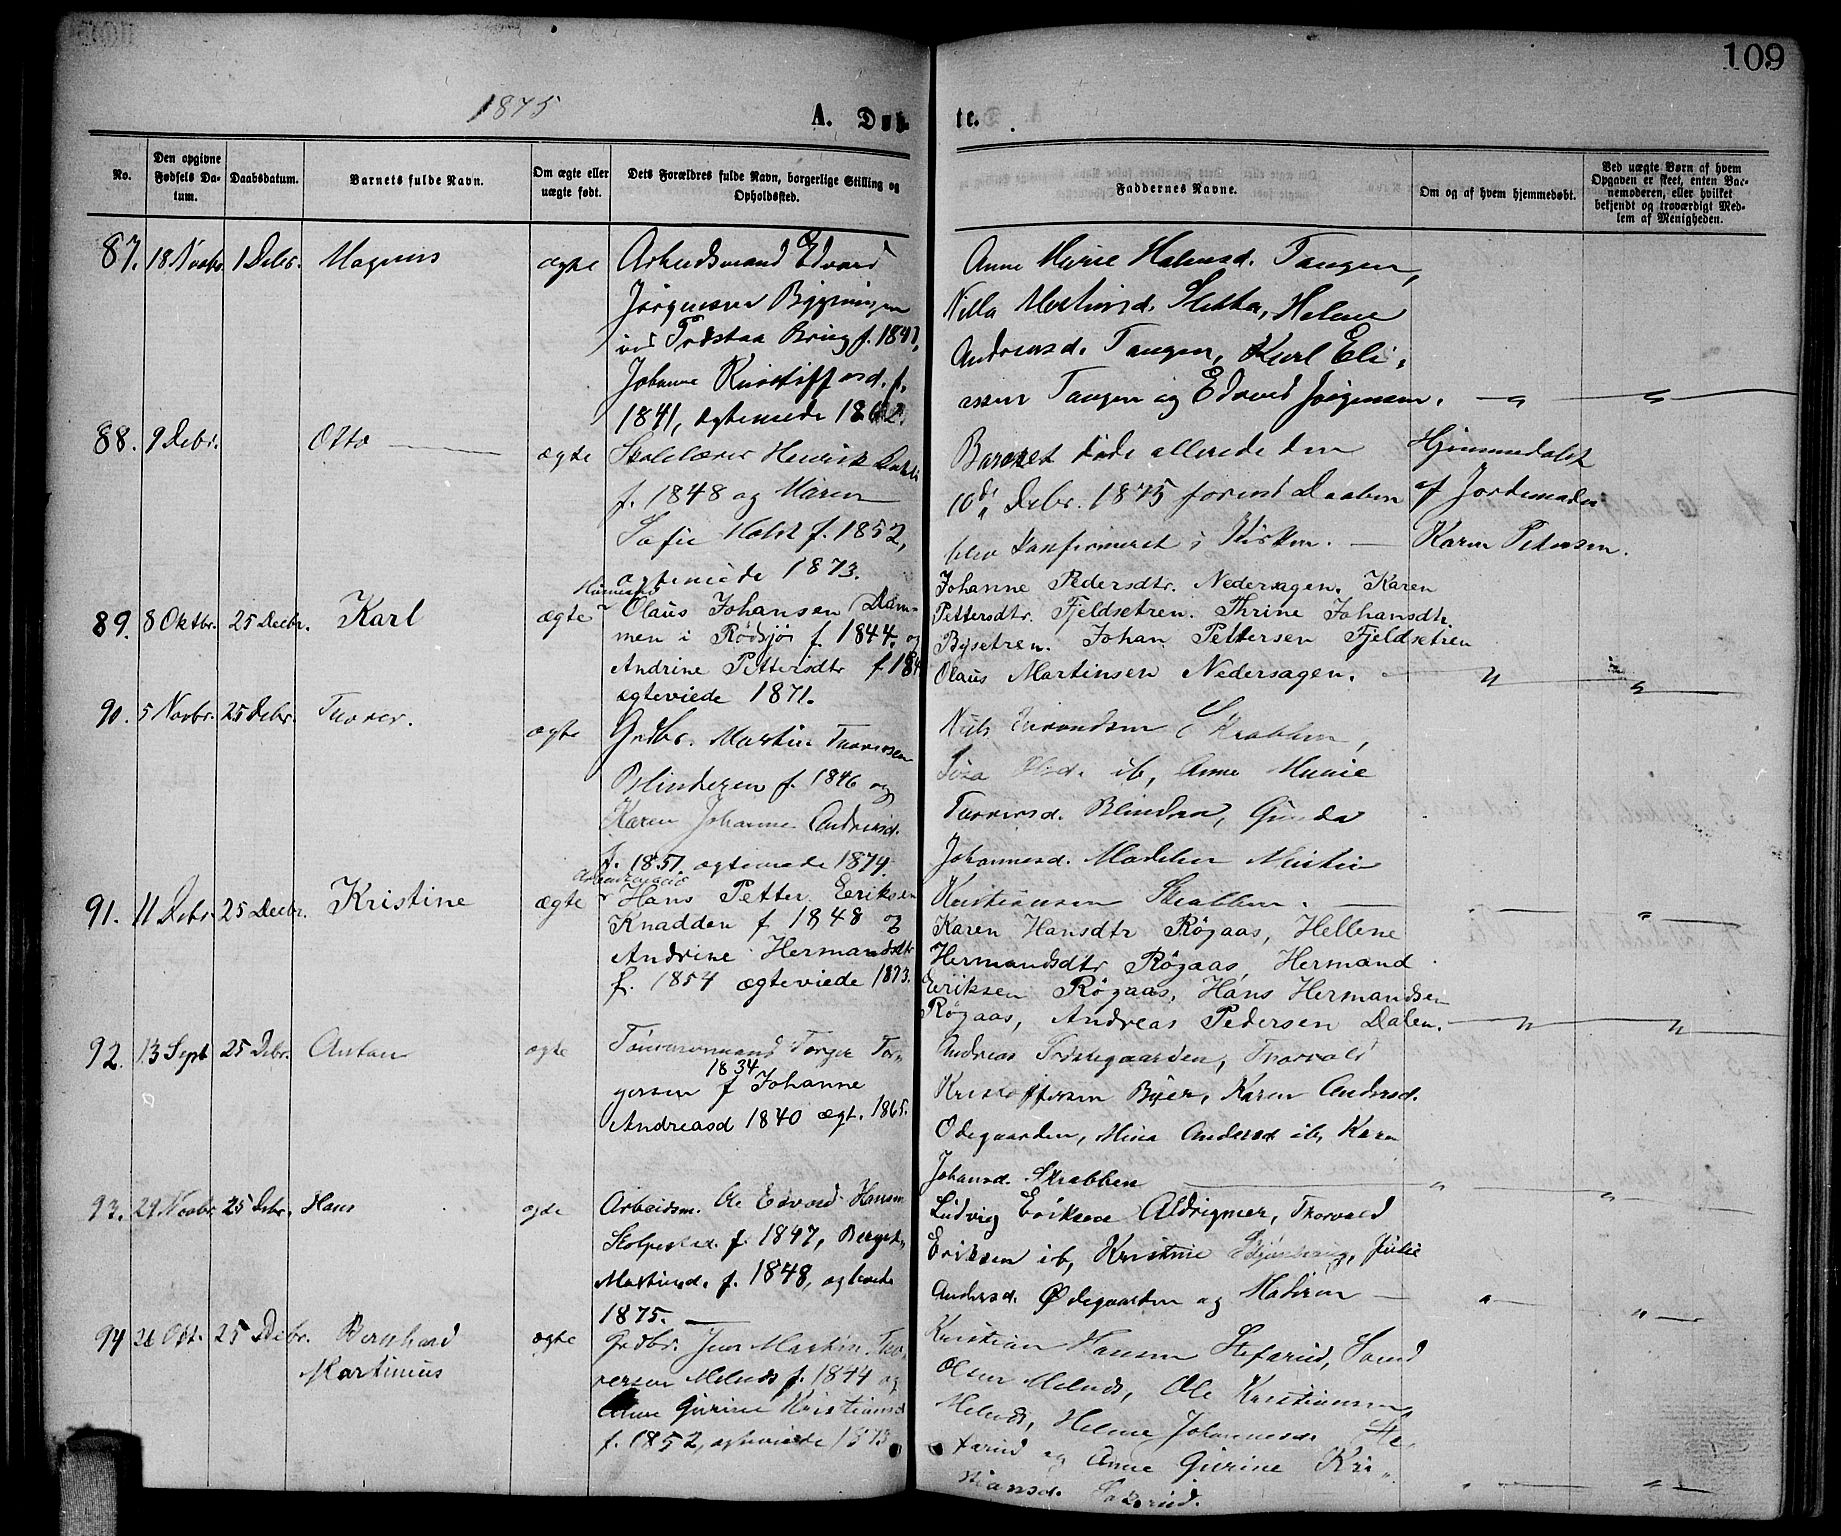 109
1875
A. Døb te.
No.
Den opgivne Fødsels Da-
tum.
Daabsdatum.
Barnets fulde Navn.
Om ægte eller
uægte født.
Dets Forældres fulde Navn, borgerlige Stilling og
Opholdssted.
Faddernes Navne.
Om og af hvem hjemmedøbt.
Ved uægte Børn af hvem
Opgaven er skeet, enten Bar-
nemoderen, eller hvilket
bekjendt og troværdigt Med-
lem af Menigheden.
87. 18 Novbr. 1 Debr. Magnus ægte Arbeidsmand Edvard
Jørgensen Bygningen
ved Brug f. 1841,
Johanne Kristoffersd. f.
1841, ægteviede 1862.
Anne Marie Halvorsd. Tangen,
Martinsd. Sletta, Helene
Andreasd. Tangen, Karl Eli-
assen Tangen og Edvard Jørgensen. " "
88. 9 Debr. Otto ægte Skolelærer Henrik
f. 1848 og Maren
Sofie Holst f. 1852,
ægteviede 1873.
Barnet døde allerede den
10de Debr. 1875 forend Daaben
blev konfirmeret i Kirken.
Hjemmedøbt
af Jordemoder
Karen Petersen.
89. 8 Oktbr. 25 Decbr. Karl ægte Husmand
Olaus Johansen Dam-
men i Rödsjö f. 1844. og
Andrine Pettersdtr f. 184
ægteviede 1871.
Johanne Pedersdtr. Nedersagen. Karen
Pettersdtr. Fjeldsetren. Thrine Johansdtr.
Bysetren. Johan Pettersen Fjeldsetren
Olaus Martinsen Nedersagen. " "
90. 5 Novbr. 25 Debr. Thorer. ægte Grdbr. Martin Thorersen
Blinderen f. 1846 og
Karen Johanne Andreasd.
f. 1851, ægteviede 1874.
Niels Skrabben,
Olsd. ib, Anne Marie
Thorersd. Blindern, Gunda
Johannesd. Madelen Martin
Kristiansen Skrabben. " "
91. 11 Debr. 25 Decbr. Kristine ægte Arbeidsmand
Hans Petter Eeriksen
Knadden f 1848 og
Andrine Hermandsdtr
f. 1854 ægteviede 1873.
Karen Hansdtr Rögaas, Hellene
Hermandsdtr Rögaas, Hermand
Eeriksen Rögaas, Hans Hermandsen
Rögaas, Andreas Pedersen Dalen. " "
92. 13 Sept 25 Debr. Anton ægte Tømmermand Torger Tor-
gersen f 1834 Johanne
Andreasd 1840 ægt. 1865.
Andreas Thorvald
Kristoffersen Byer, Karen Andersd.
Ødegaarden, Mina Andersd ib, Karen
Johansd. Skrabben " "
93. 29 Novbr 25 Debr. Hans ægte Arbeidsm. Ole Edvard Hansen
f. 1847, Berget
Martinsd. f. 1848, ægteviede
1875.
Ludvig Eriksen Aldrigmer, Thorvald
Eriksen ib, Kristine Julie
Andersd. Ødegaarden og Moderen " "
94 26 Okt. 25 Debr. Bernhard
Martinius ægte Grdbr. Jens Martin Tho-
versen Melnds f. 1844 og
Anne Gurine Kristiansd
f. 1852, ægteviede 1873
Kristian Hansen
Olsen Melnds, Ole Kristiansen
Melnds, Helene Johannesd.
og Anne Gurine Kri-
stiansd. " "